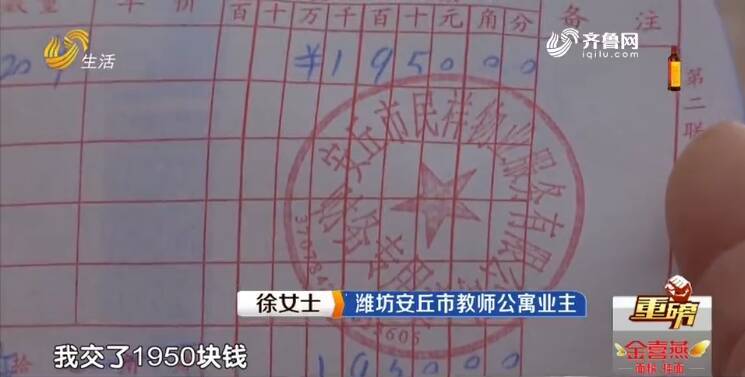 数量 单价 百 十 万 千 百 十 元 角 分 备注
¥195000
生活
齐鲁网
iqilu.com
第二联
安丘市民祥物业服务有限公司
财务专用章
徐女士 潍坊安丘市教师公寓业主
重磅
金喜燕
我交了1950块钱
拾
195000